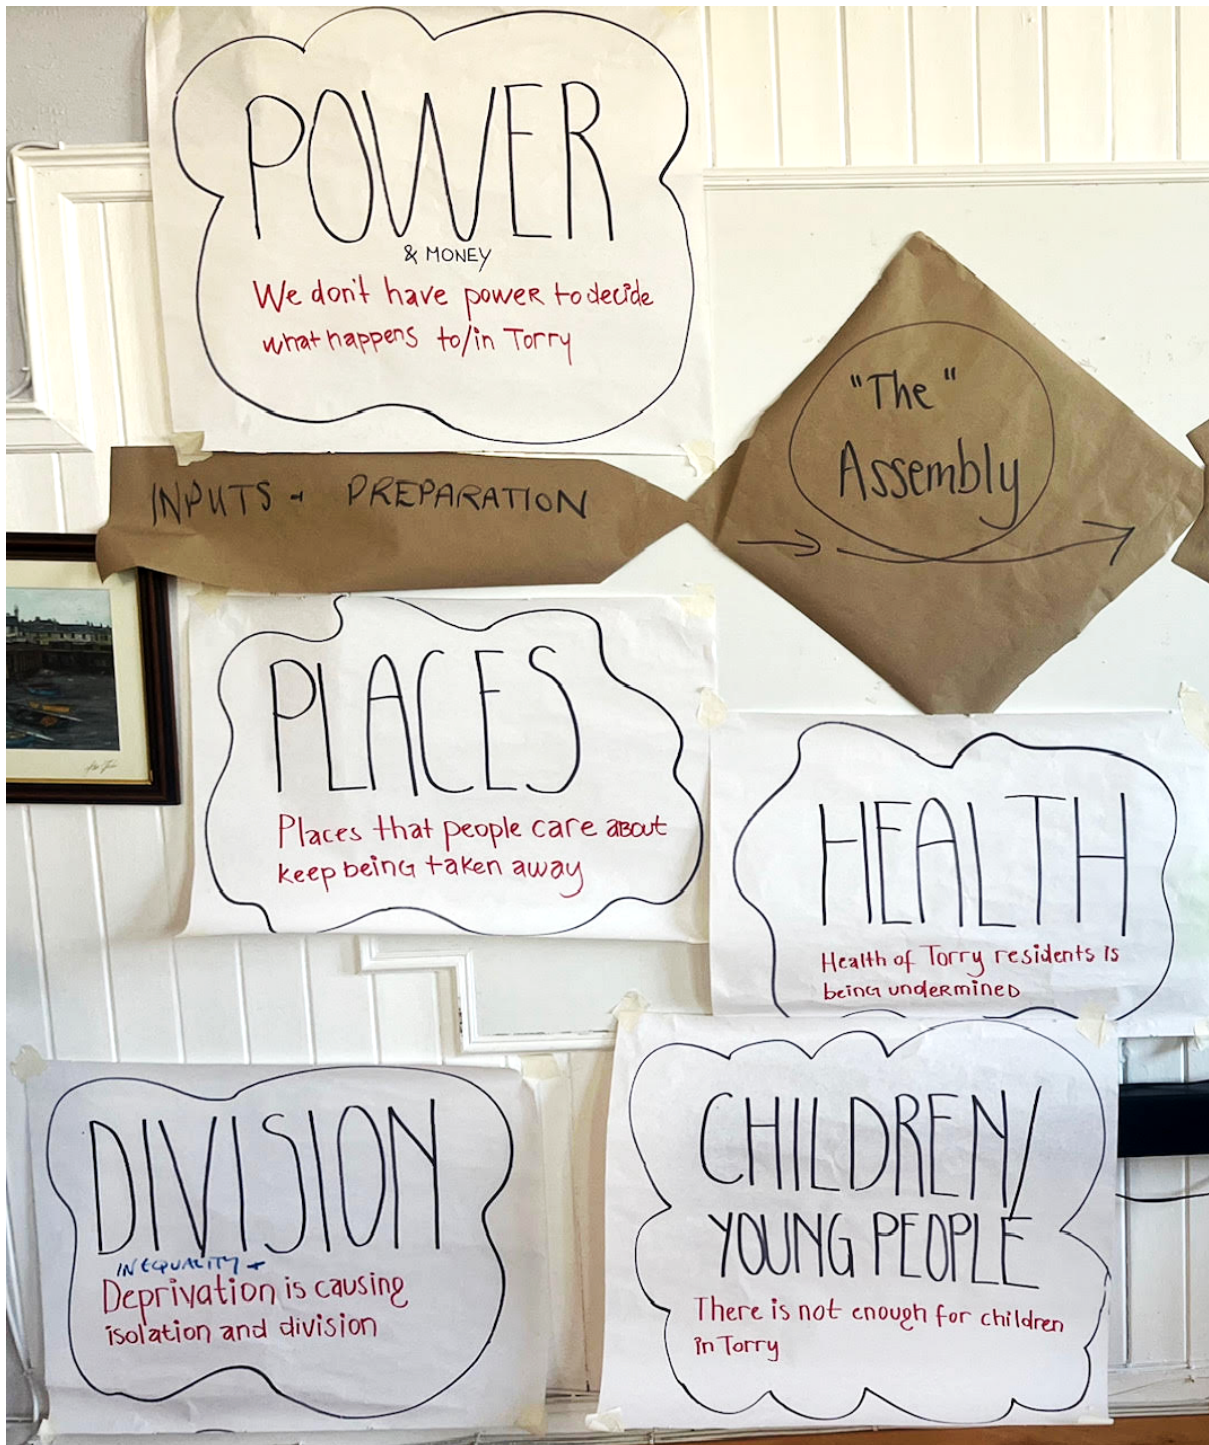 POWER
& MONEY
We don't have power to decide
what happens to/in Torry
"The"
Assembly
INPUTS + PREPARATION
PLACES
Places that people care about
keep being taken away
HEALTH
Health of Torry residents is
being undermined
DIVISION
INEQUALITY +
Deprivation is causing
isolation and division
CHILDREN/
YOUNG PEOPLE
There is not enough for children
in Torry